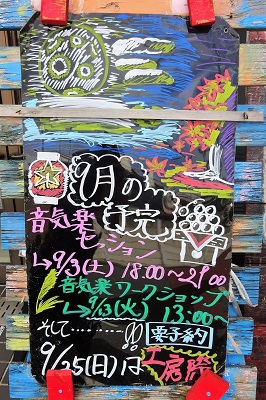 9月の
予定
音気楽
セッション
↳9/3(土) 18:00〜21:00
音気楽ワークショップ
↳9/13(火) 13:00〜
そして………!!
要予約
9/25(日)は
工房祭